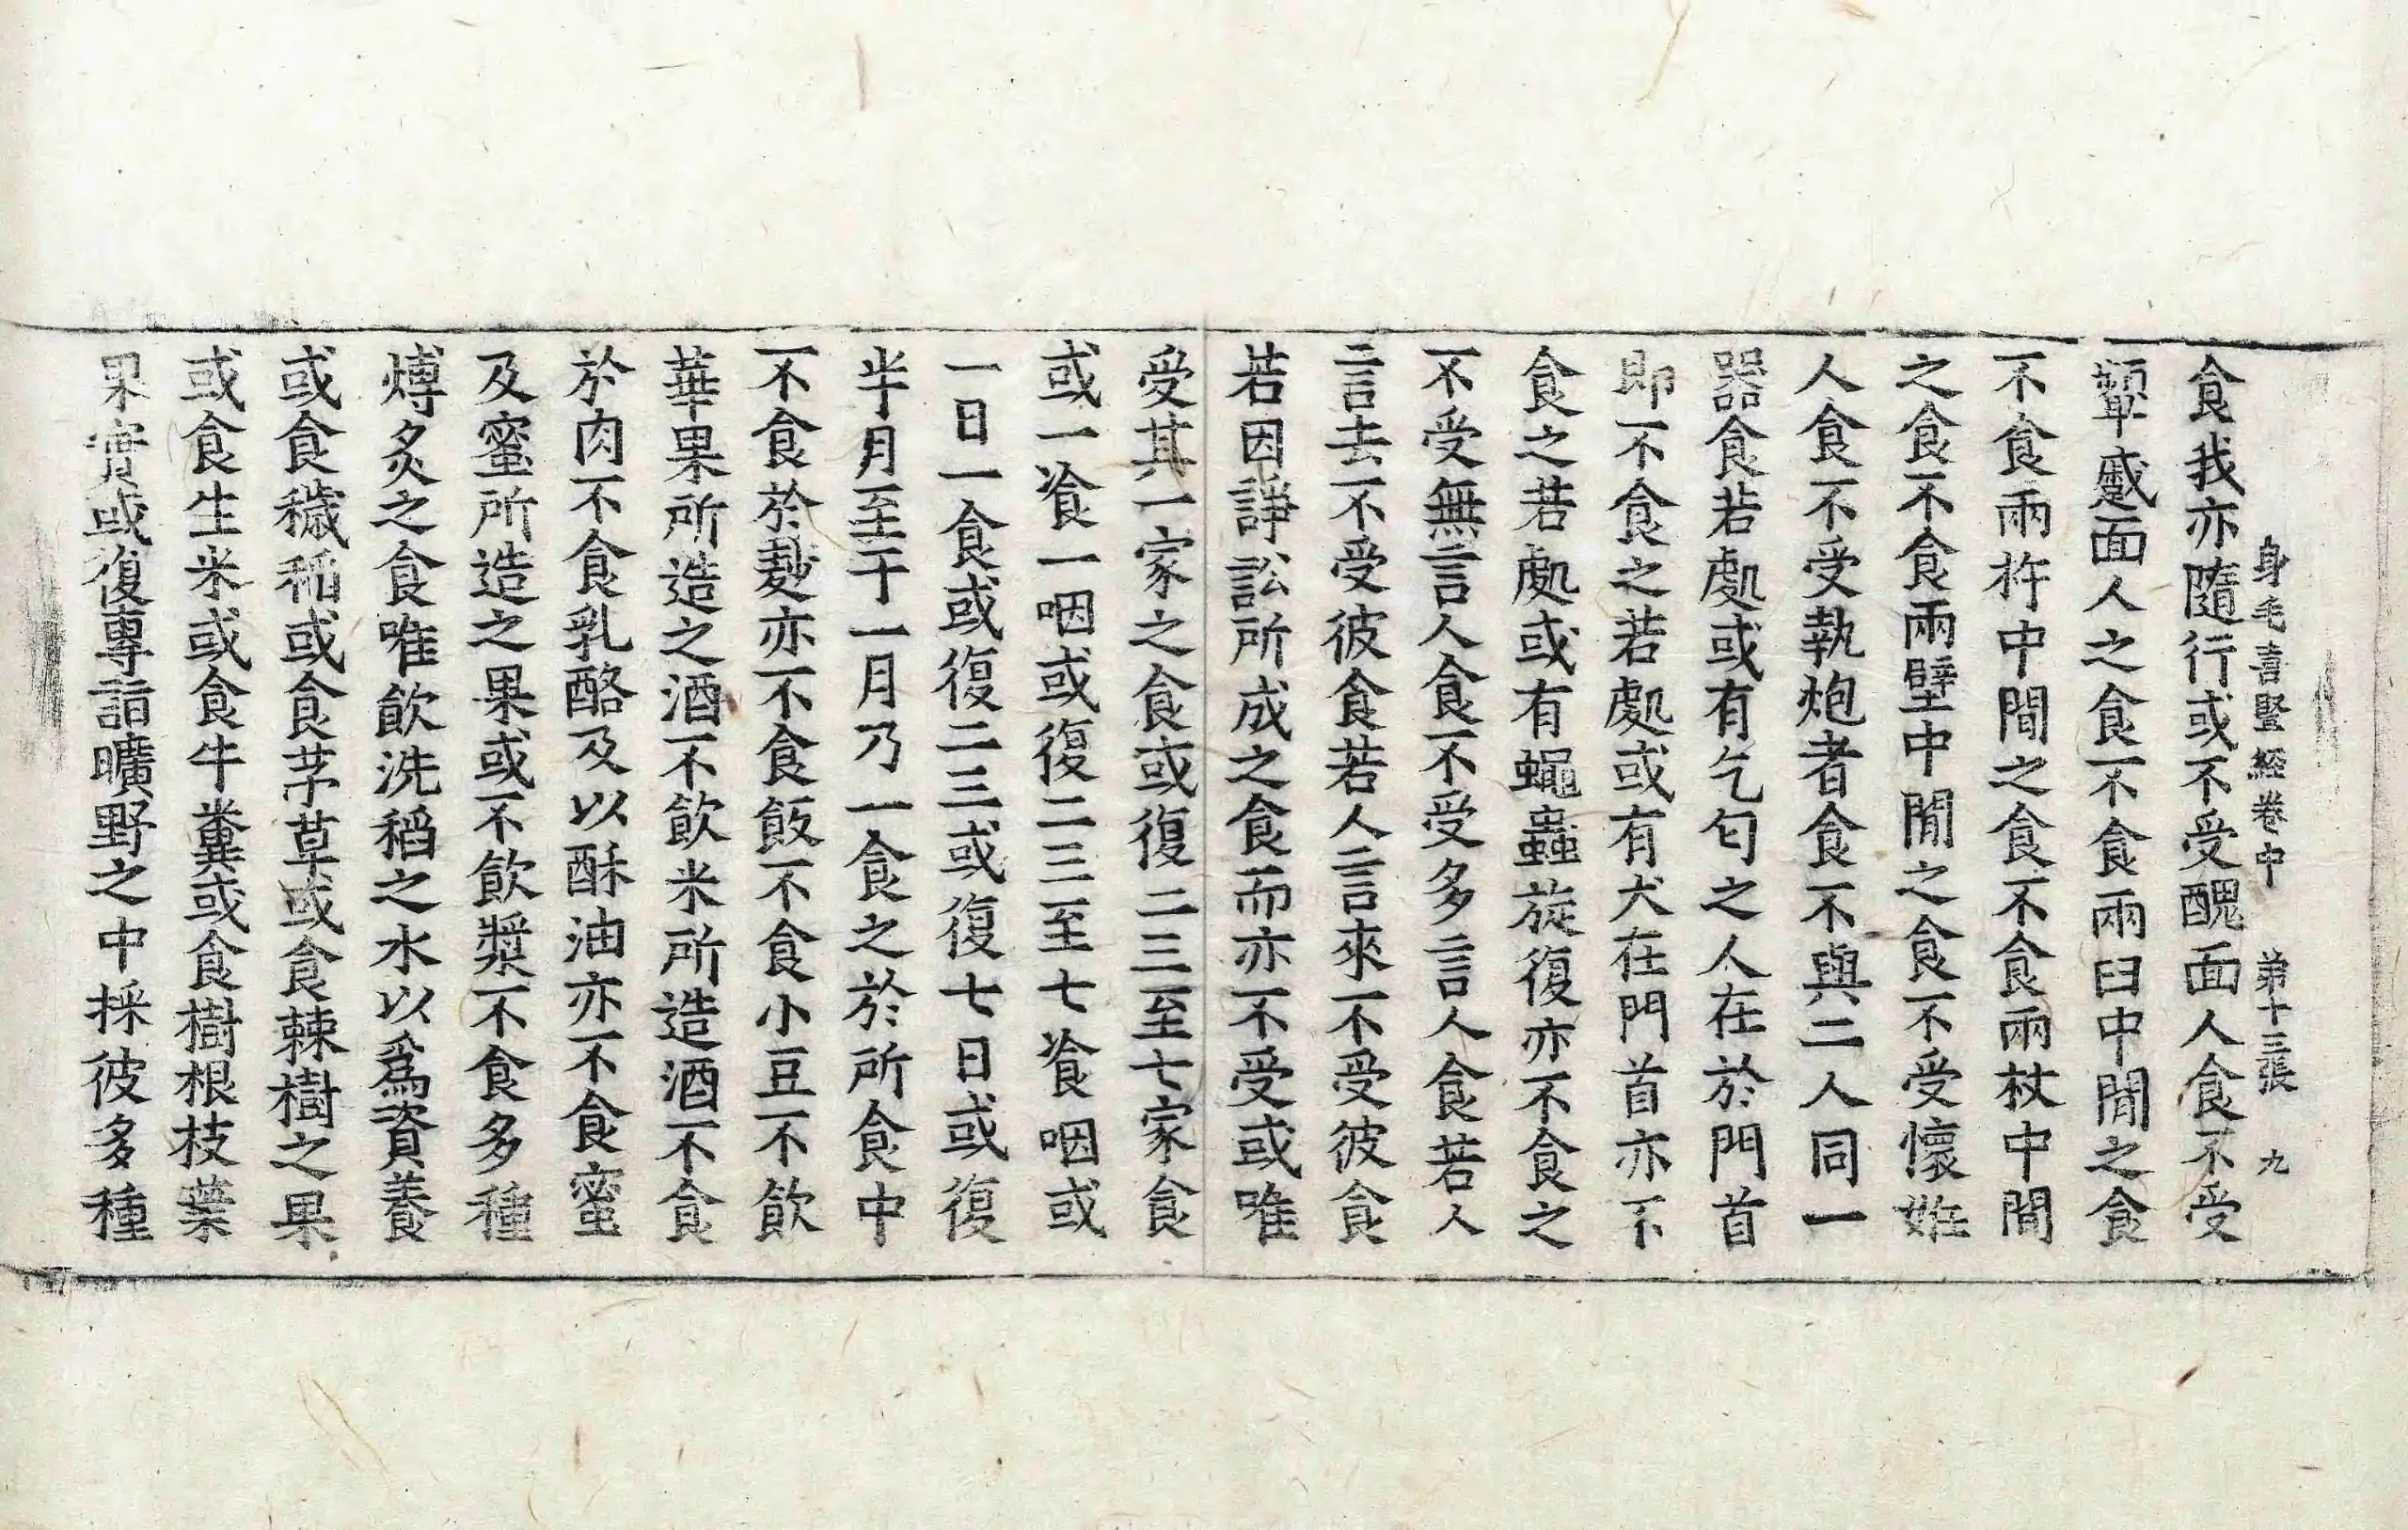 身毛喜竪経卷中　第十三張　九
食我亦隨行或不受醜面人食不受
顰蹙面人之食不食兩臼中間之食
不食兩杵中間之食不食兩杖中間
之食不食兩壁中間之食不受懷妊
人食不受執炮者食不與二人同一
器食若處或有乞匂之人在於門首
即不食之若處或有犬在門首亦不
食之若處或有蠅蟲旋復亦不食之
不受無言人食不受多言人食若人
言去不受彼食若人言來不受彼食
若因諍訟所成之食而亦不受或唯
受其一家之食或復二三至七家食
或一飡一咽或復二三至七飡咽或
一日一食或復二三或復七日或復
半月至于一月乃一食之於所食中
不食於麨亦不食飯不食小豆不飲
華果所造之酒不飲米所造酒不食
於肉不食乳酪及以酥油亦不食蜜
及蜜所造之果或不飲漿不食多種
煿炙之食唯飲洗稻之水以爲資養
或食穢稻或食茅草或食棘樹之果
或食生米或食牛糞或食樹根枝葉
果實或復專詣曠野之中採彼多種